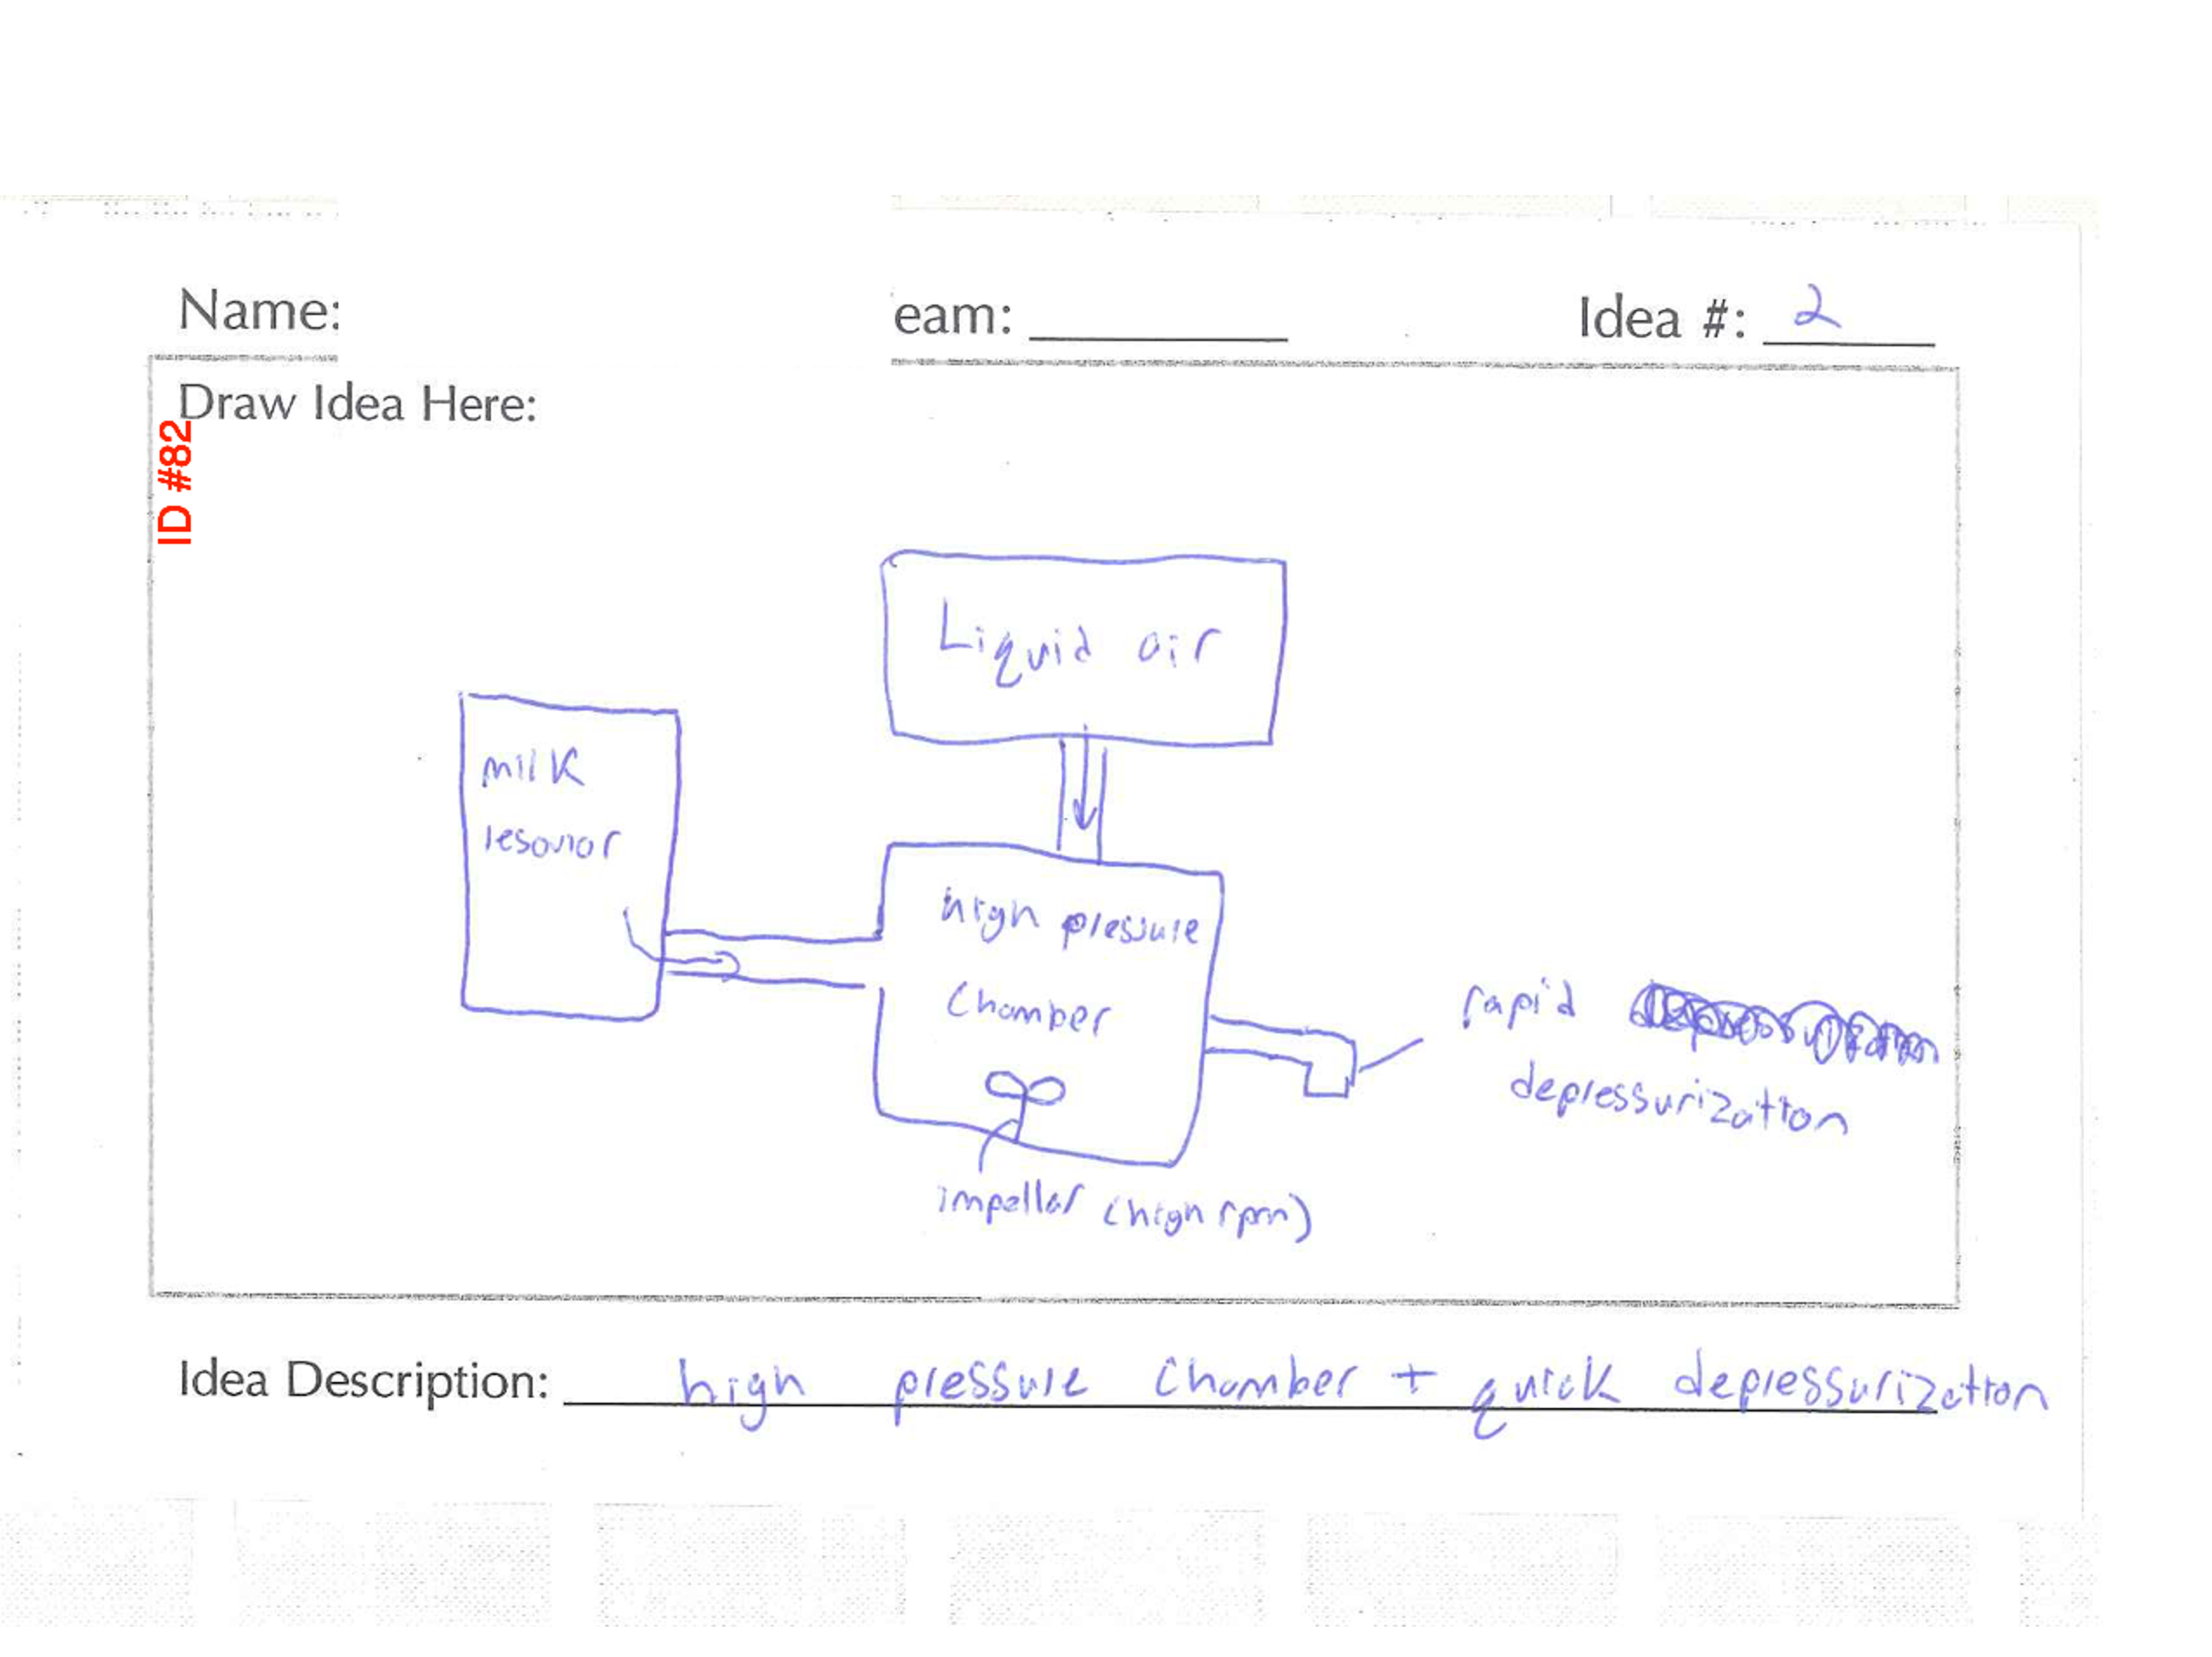 Name:
eam:
Idea #: 2
Draw Idea Here:
ID #82
Liquid air
milk
resovior
high pressure
chamber
rapid
depressurization
impellar (high rpm)
Idea Description: high pressure chamber + quick depressurization